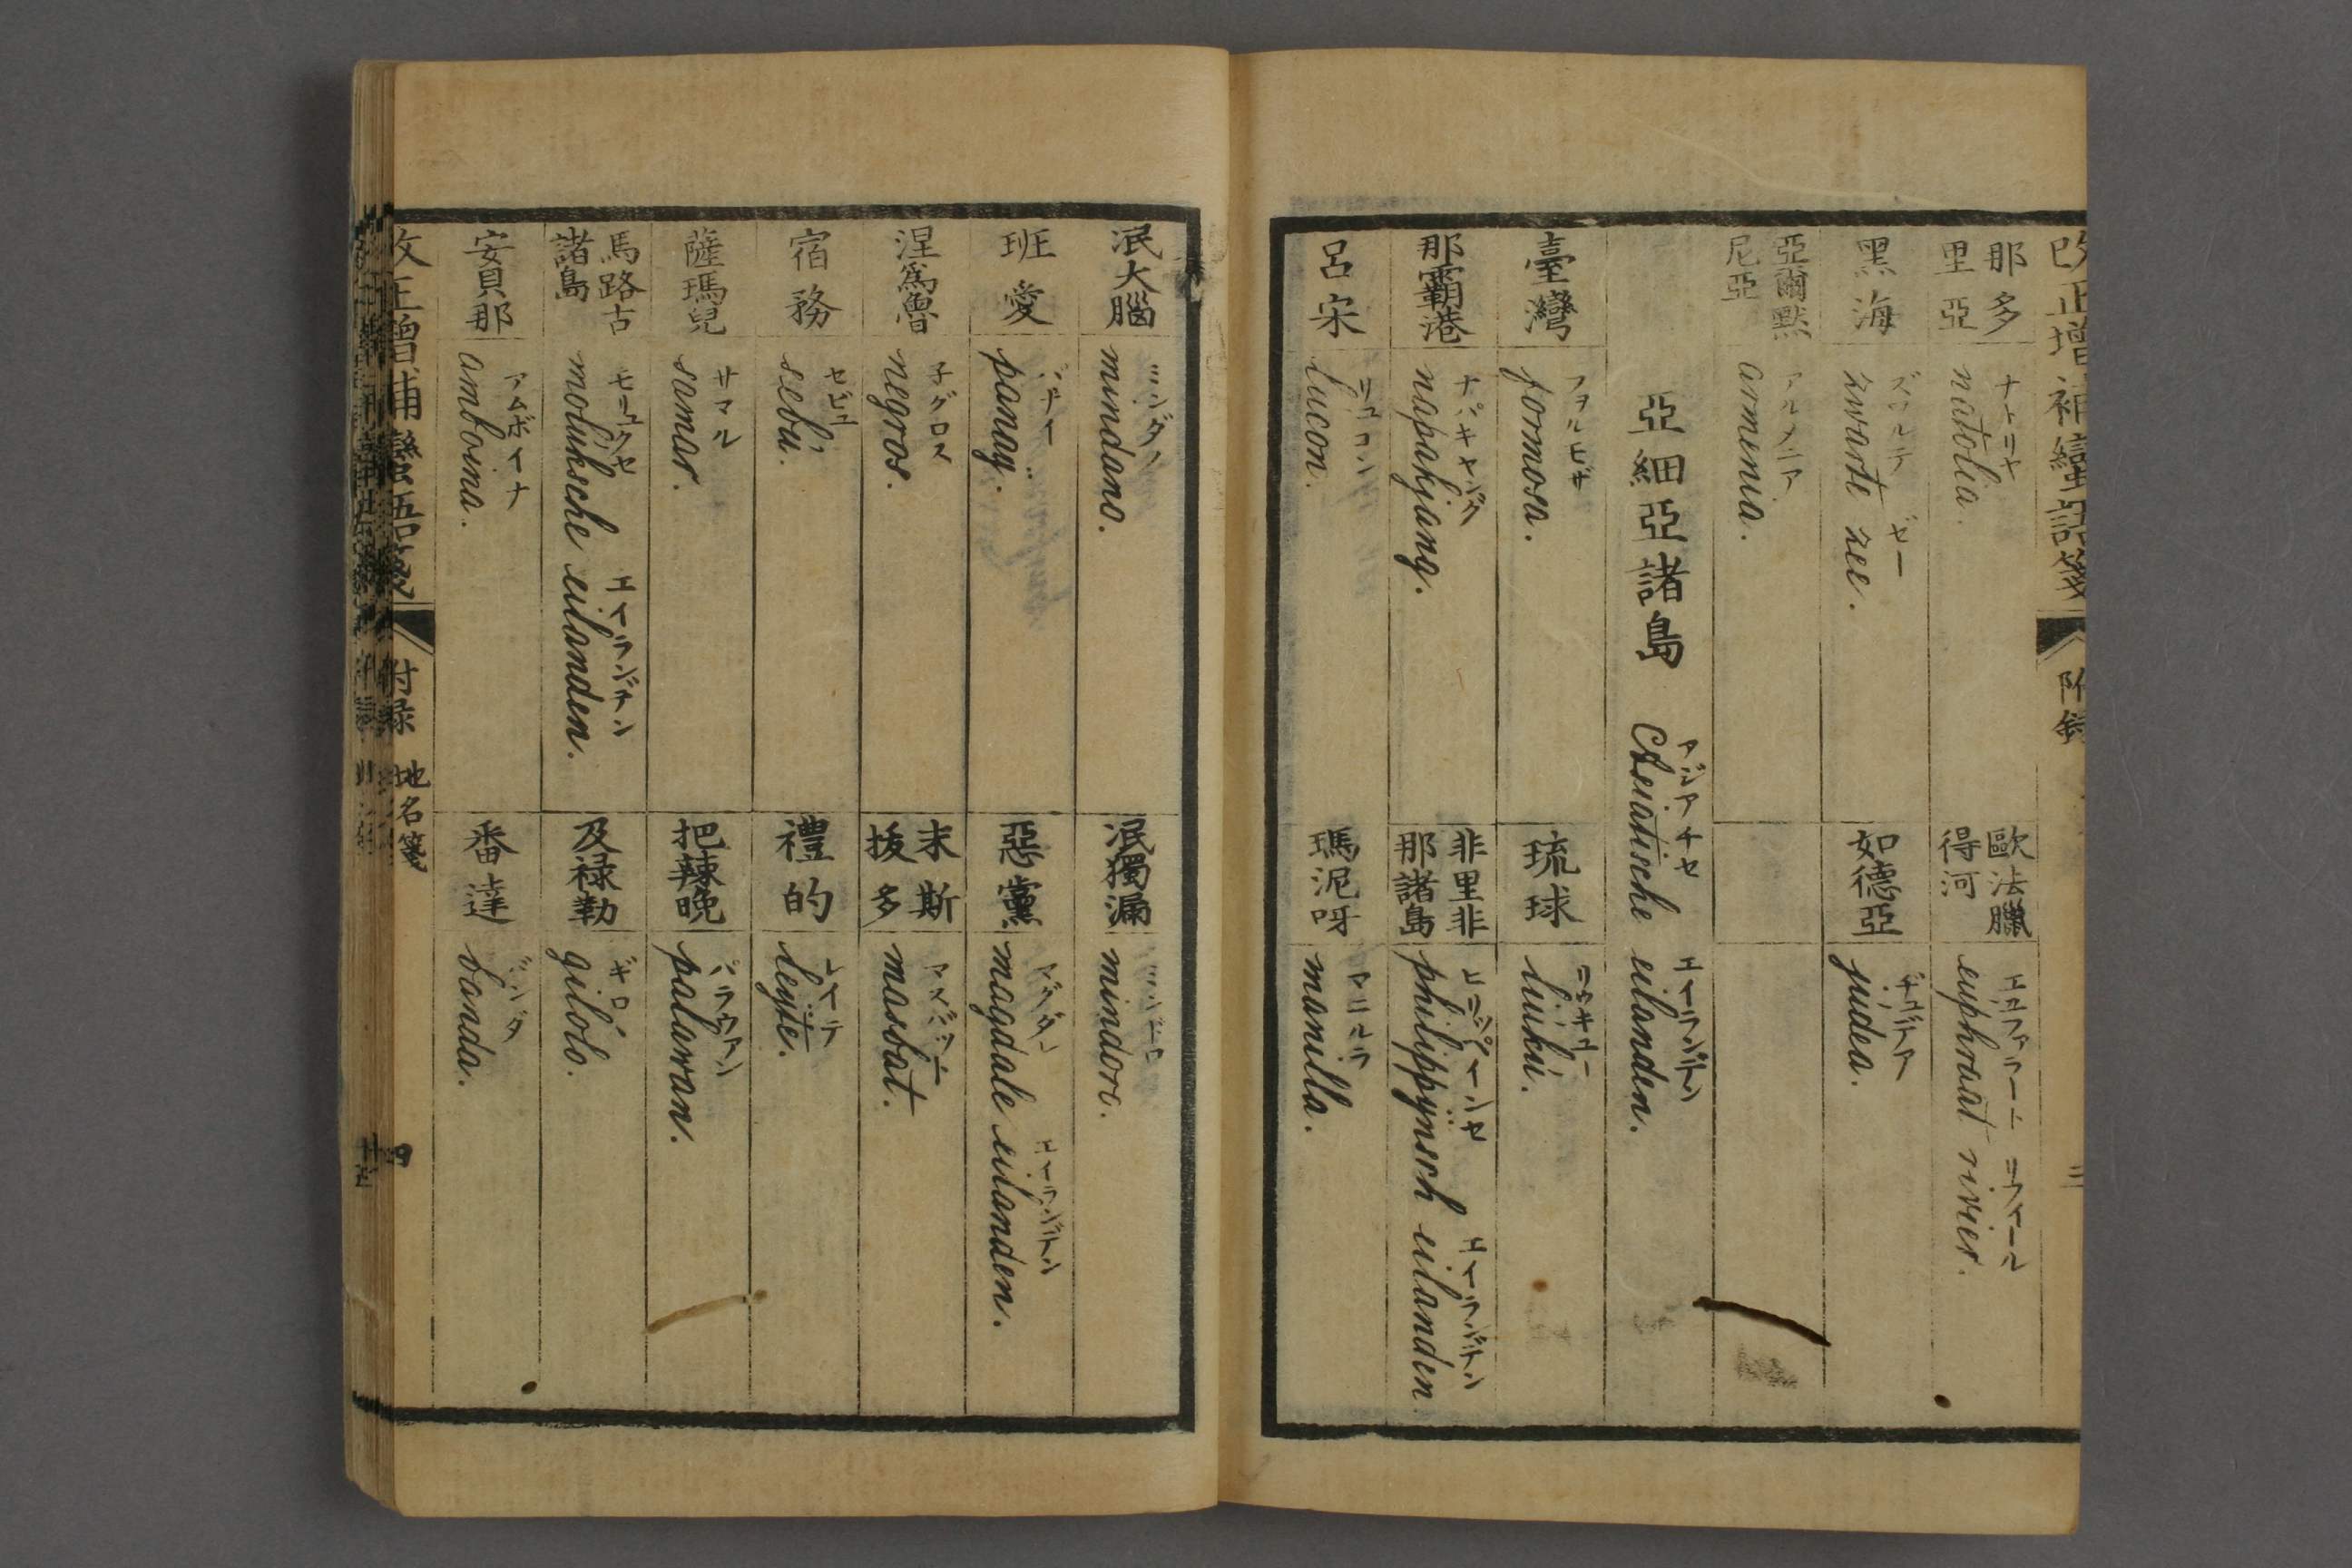 改正増補蠻語箋
附録
三
那多里亞
ナトリヤ
natolia.
歐法臘得河
エユファラート リフィール
euphraat rivier.
黑海
ズワルテ ゼー
zwarte zee.
如德亞
ヂュデア
judea.
亞爾默尼亞
アルメニア
armenia.
亞細亞諸島
アジアチセ エイランデン
Asiatische eilanden.
臺灣
フヲルモサ
formosa.
琉球
リウキユー
liuku.
那霸港
ナパキャング
napakjang.
非里非那諸島
ヒリッペインセ エイランデン
philippynsch eilanden
呂宋
リュコン
lucon.
瑪泥呀
マニルラ
manilla.
泯大腦
ミンダノ
mindano.
泯獨漏
ミンドロ
mindoro.
班愛
パナイ
panay.
惡黨
マグダレ エイランデン
magdale eilanden.
涅爲魯
子グロス
negros.
末斯拔多
マスバット
masbat.
宿務
セビュ
sebu.
禮的
レイテ
leyte.
薩瑪兒
サマル
samar.
把辣晚
パラウアン
palawan.
馬路古諸島
モリュクセ エイランデン
moluksche eilanden.
及禄勒
ギロヽ
gilolo.
安貝那
アムボイナ
amboina.
番達
バンダ
banda.
改正増補蠻語箋
附录 地名箋
四